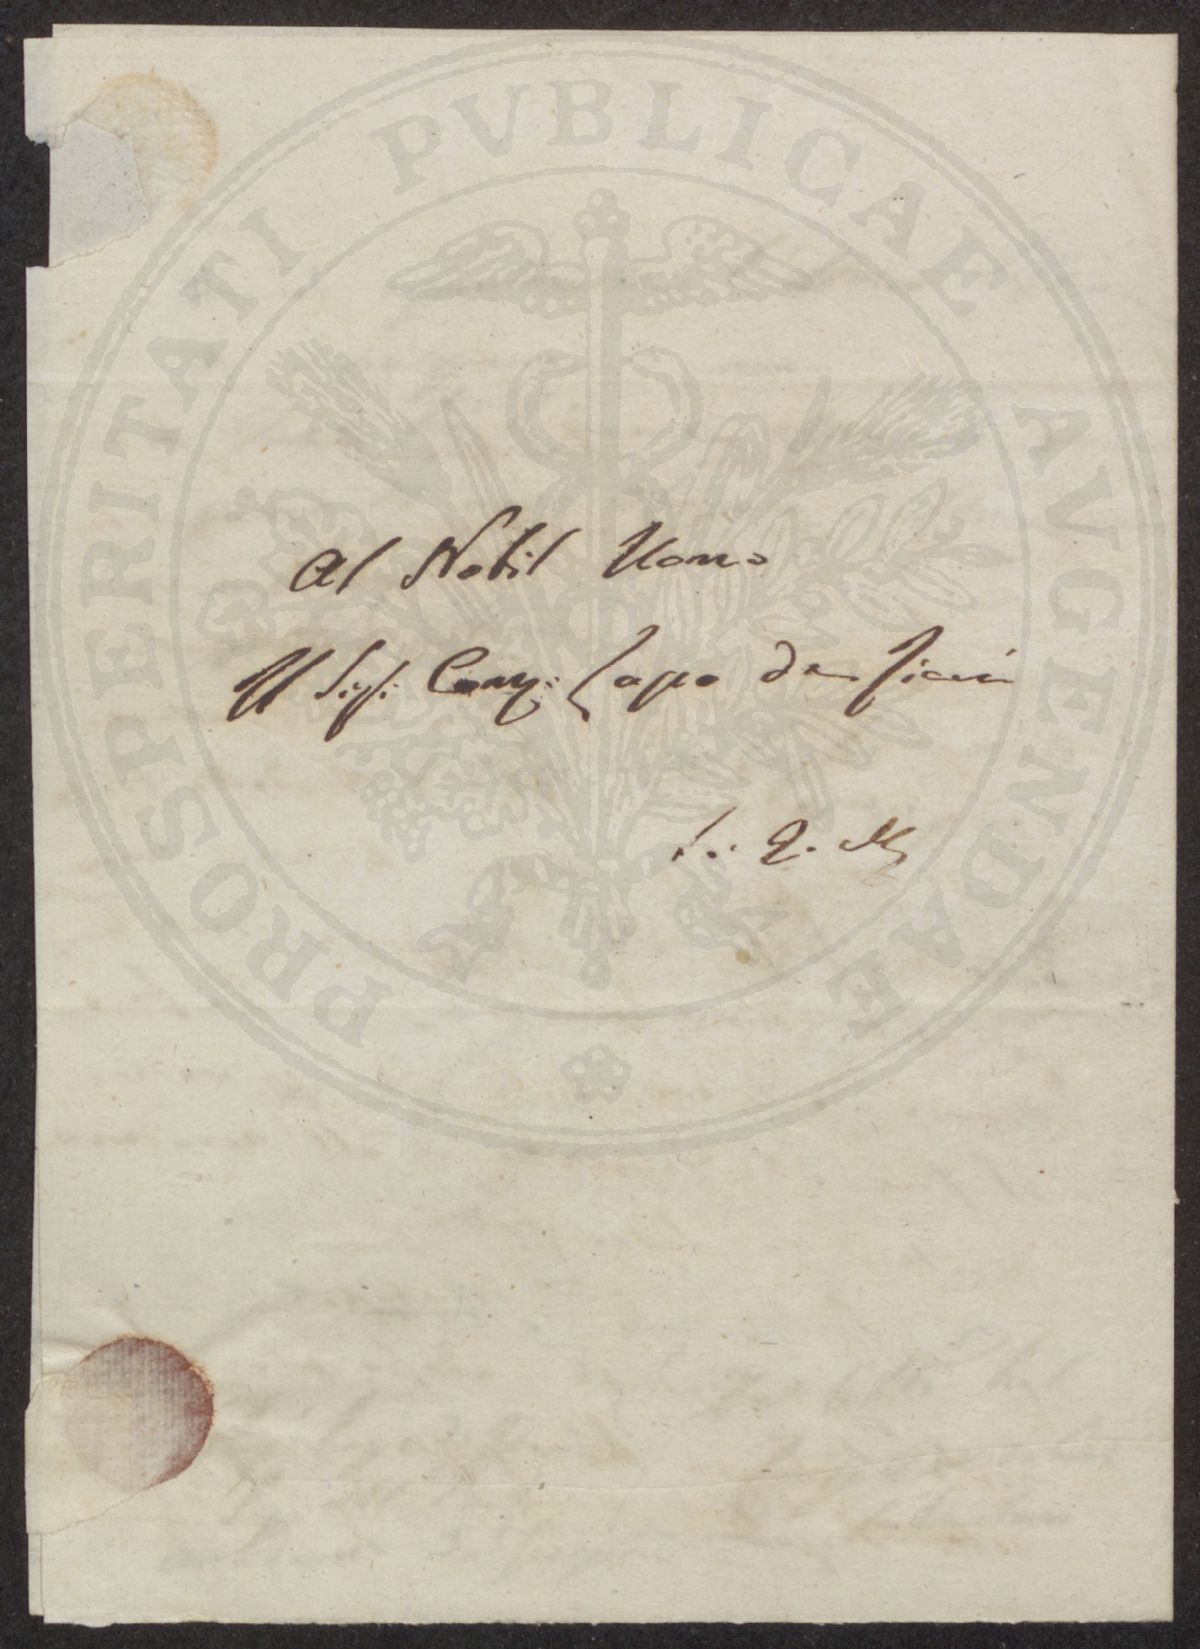 PROSPERITATI PVBLICAE AVGENDAE
Al Nobil Uomo
Il Sig: Cav: Lapo de Ricci
S. Q. M.